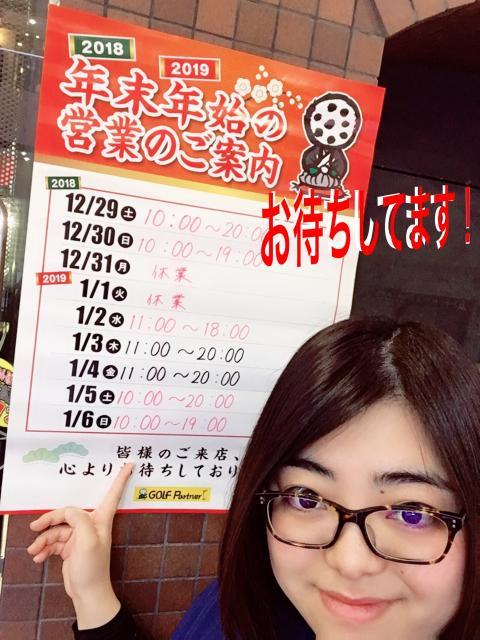 2018
2019
年末年始の
営業のご案内
お待ちしてます!
2018
12/29 土 10:00～20:00
12/30 日 10:00～19:00
12/31 月 休業
2019
1/1 火 休業
1/2 水 11:00～18:00
1/3 木 11:00～20:00
1/4 金 11:00～20:00
1/5 土 10:00～20:00
1/6 日 10:00～19:00
皆様のご来店、
心よりお待ちしており
GOLF Partner